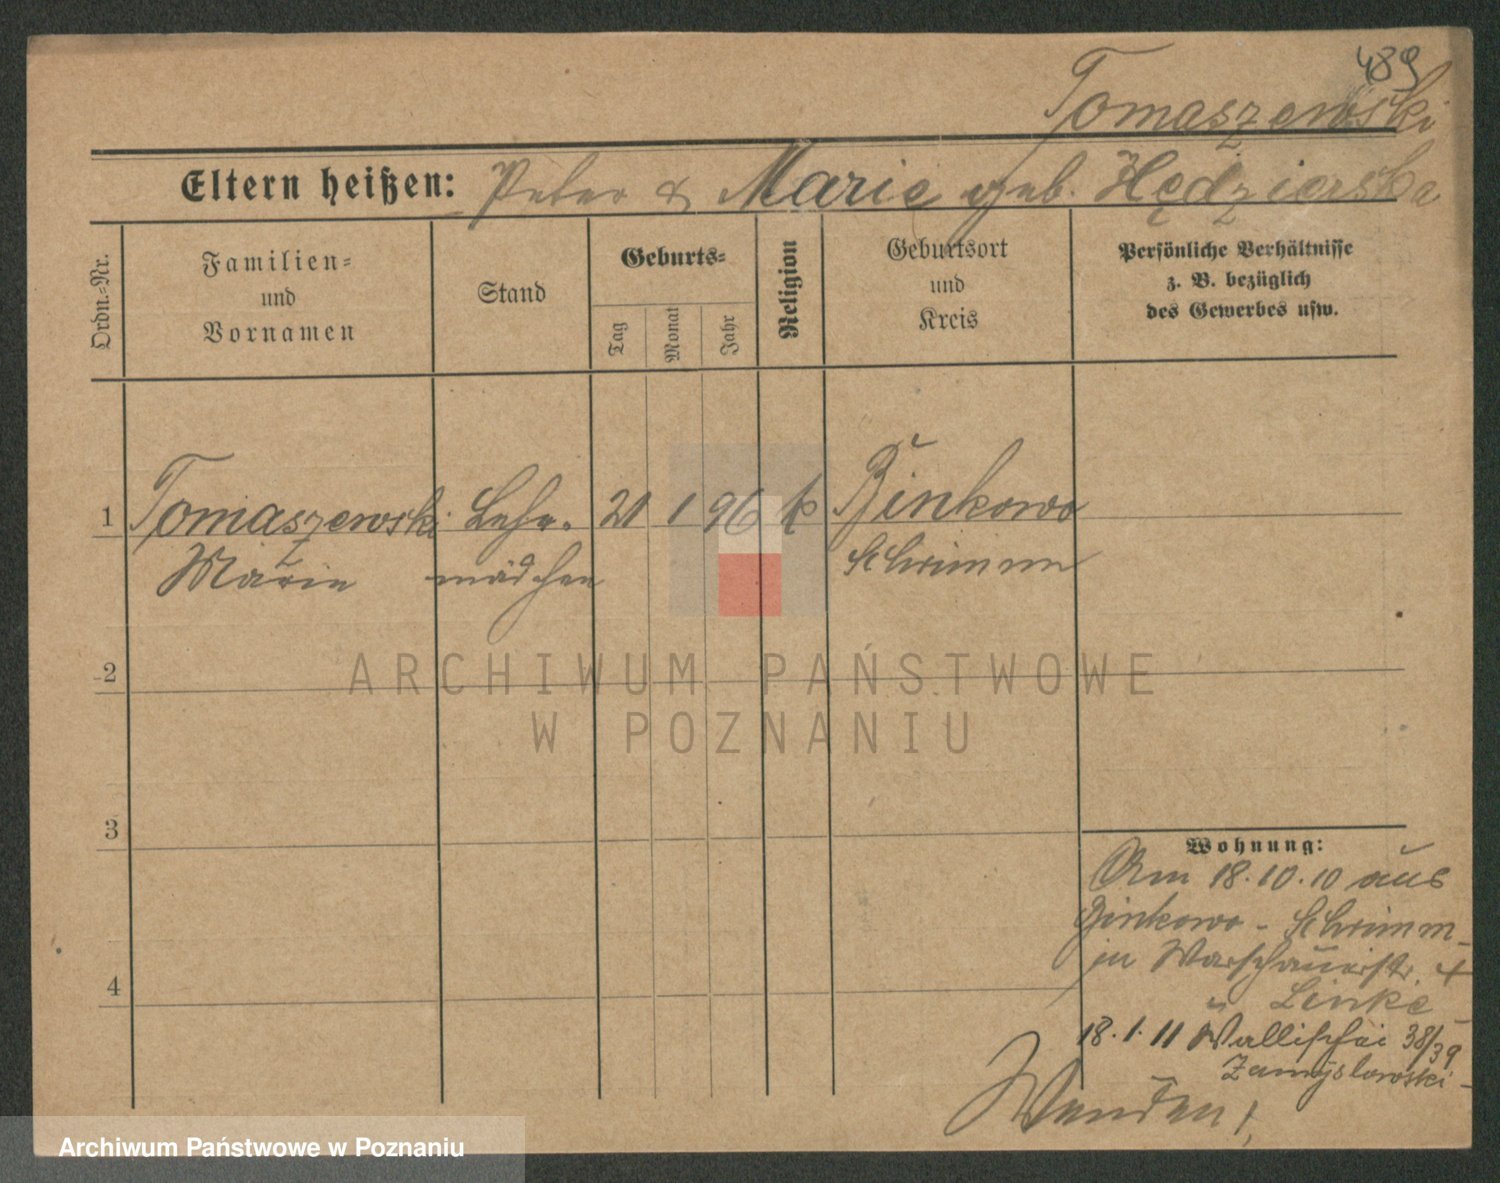 489
Tomaszewski
Eltern heißen: Peter & Marie geb. Hędzierska
Ordn.=Nr.
Familien=
und
Vornamen
Stand
Geburts=
Tag
Monat
Jahr
Religion
Geburtsort
und
Kreis
Persönliche Verhältnisse
z. B. bezüglich
des Gewerbes usw.
1 Tomaszewski Lehr= 21 1 96 k Binkowo
Marie mädchen Schrimm
2
3
4
Wohnung:
Am 18.10.10 aus
Binkowo - Schrimm -
zu Warschauerstr. 4
b Linke -
18.1.11 Wallischei 38/39
Zamyslowski -
Wenden!
ARCHIWUM PAŃSTWOWE
W POZNANIU
Archiwum Państwowe w Poznaniu